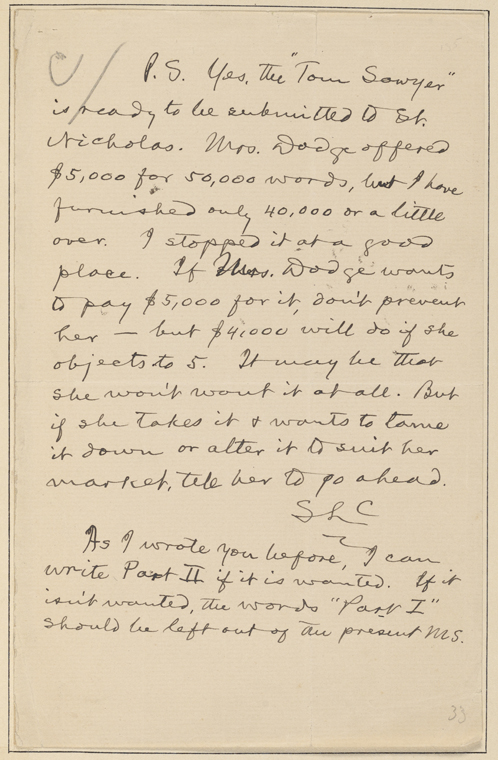 P.S. Yes, the "Tom Sawyer"
is ready to be submitted to St.
Nicholas. Mrs. Dodge offered
$5,000 for 50,000 words, but I have
furnished only 40,000 or a little
over. I stopped it at a good
place. If Mrs. Dodge wants
to pay $5,000 for it, don't prevent
her — but $4,000 will do if she
objects to 5. It may be that
she won't want it at all. But
if she takes it & wants to tame
it down or alter it to suit her
market, tell her to go ahead.
SLC
As I wrote you before, I can
write Part II if it is wanted. If it
isn't wanted, the words "Part I"
should be left out of the present MS.
33